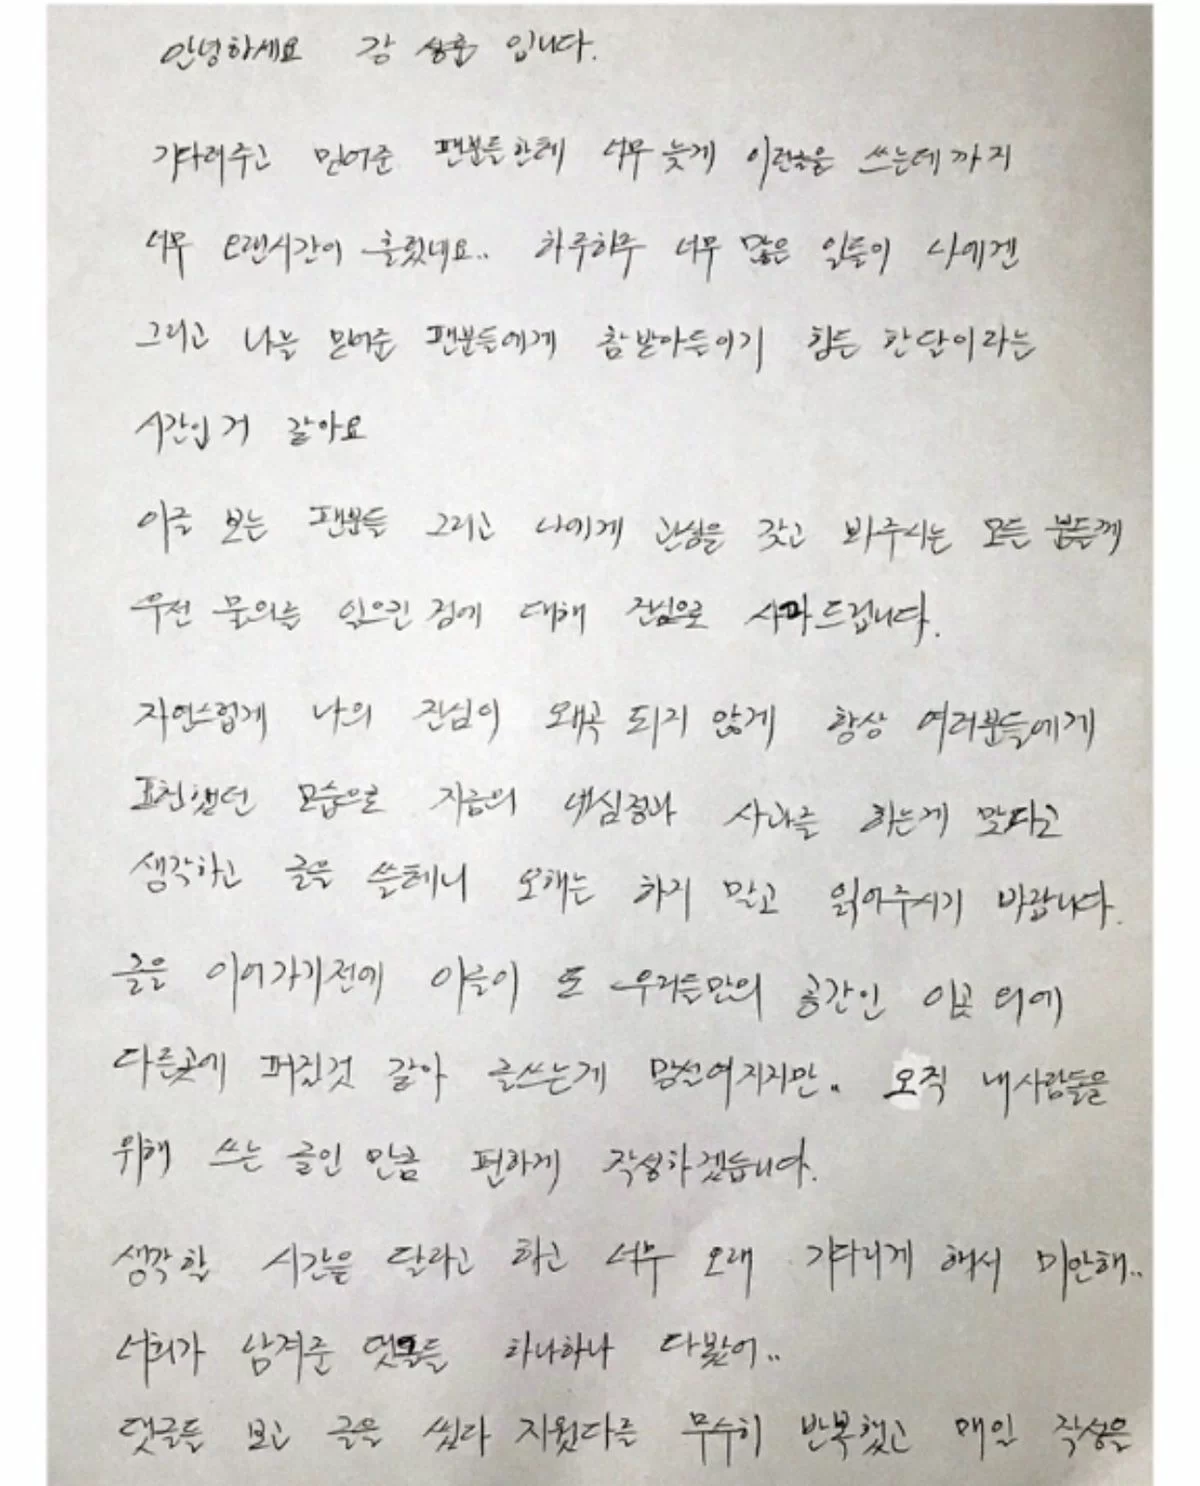 안녕하세요 강 성훈 입니다.
기다려주고 믿어준 팬분들한테 너무 늦게 이런글을 쓰는데까지
너무 오랜시간이 흘렀네요.. 하루하루 너무 많은 일들이 나에겐
그리고 나를 믿어준 팬분들에게 참 받아들이기 힘든 한달이라는
시간인거 같아요
이글 보는 팬분들 그리고 나에게 관심을 갖고 봐주시는 모든 분들께
우선 물의를 일으킨 점에 대해 진심으로 사과드립니다.
자연스럽게 나의 진심이 왜곡 되지 않게 항상 여러분들에게
표현했던 모습으로 지금의 내심정과 사과를 하는게 맞다고
생각하고 글을 쓸테니 오해는 하지 말고 읽어주시기 바랍니다.
글을 이어가기전에 이글이 또 우리들만의 공간인 이곳 외에
다른곳에 퍼질것 같아 글쓰는게 망설여지지만.. 오직 내사람들을
위해 쓰는 글인 만큼 편하게 작성하겠습니다.
생각할 시간을 달라고 하고 너무 오래 기다리게 해서 미안해..
너희가 남겨준 댓글들 하나하나 다봤어..
댓글들 보고 글을 썼다 지웠다를 무수히 반복했고 매일 작성을